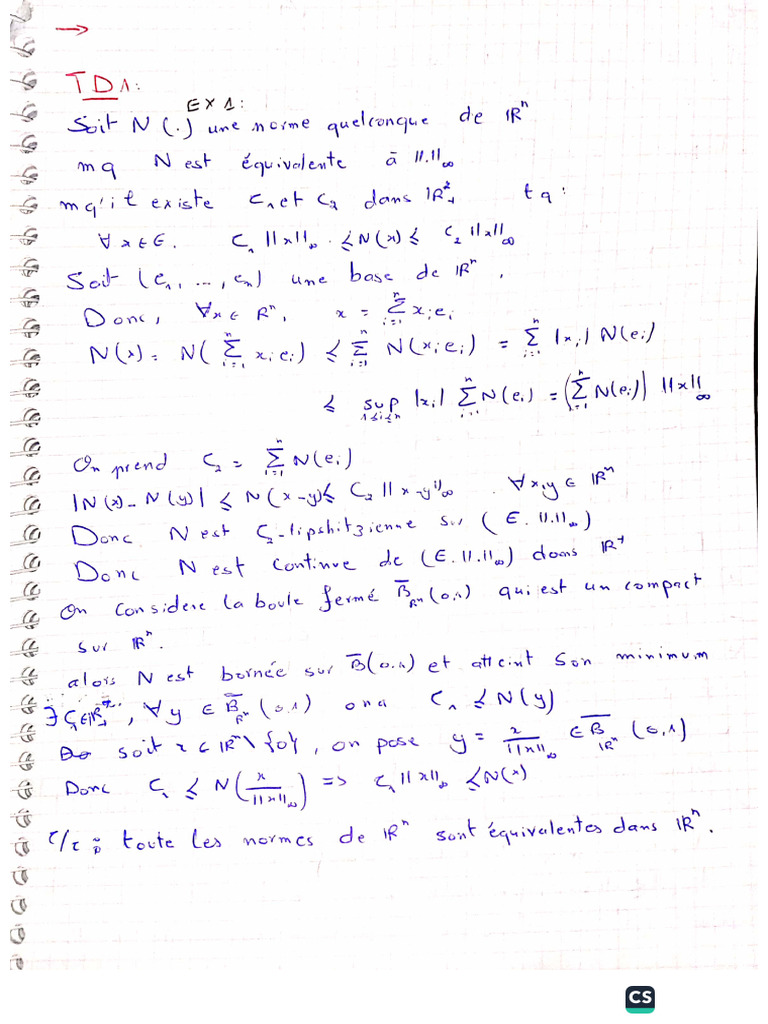 →
TD1:
EX1:
Soit N(.) une norme quelconque de ℝⁿ
mq N est équivalente à ||.||∞
mq'il existe C₁ et C₂ dans ℝ*₊ tq:
∀x∈E. C₁||x||∞ ≤ N(x) ≤ C₂||x||∞
Soit (e₁, ..., eₙ) une base de ℝⁿ,
Donc, ∀x∈ℝⁿ, x = Σᵢ₌₁ⁿ xᵢeᵢ
N(x) = N(Σᵢ₌₁ⁿ xᵢeᵢ) ≤ Σᵢ₌₁ⁿ N(xᵢeᵢ) = Σᵢ₌₁ⁿ |xᵢ| N(eᵢ)
≤ sup₁≤ᵢ≤ₙ |xᵢ| Σᵢ₌₁ⁿ N(eᵢ) = (Σᵢ₌₁ⁿ N(eᵢ)) ||x||∞
On prend C₂ = Σᵢ₌₁ⁿ N(eᵢ)
|N(x) - N(y)| ≤ N(x-y) ≤ C₂||x-y||∞ ∀x,y ∈ ℝⁿ
Donc N est C₂-lipshitzienne sur (E, ||.||∞)
Donc N est continue de (E, ||.||∞) dans ℝ⁺
On considere la boule fermé B̄_ℝⁿ(0,1) qui est un compact
sur ℝⁿ.
alors N est bornée sur B̄(0,1) et atteint son minimum
∃C₁∈ℝ*₊, ∀y ∈ B̄_ℝⁿ(0,1) ona C₁ ≤ N(y)
soit x ∈ ℝⁿ\{0}, on pose y = x/||x||∞ ∈ B̄_ℝⁿ(0,1)
Donc C₁ ≤ N(x/||x||∞) => C₁||x||∞ ≤ N(x)
toute les normes de ℝⁿ sont équivalentes dans ℝⁿ.
CS